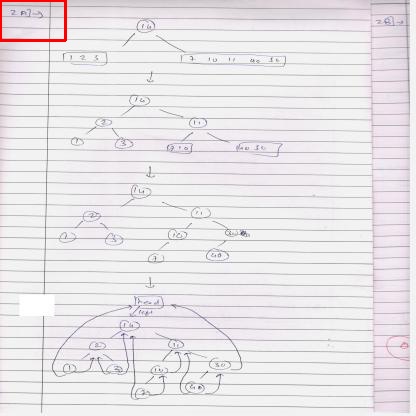 2A]→
2B]→
14
1 2 3
7 10 11 40 30
14
2 11
1 3 7 10 40 30
14
2 11
1 3 10
7 40
head
left
14
2 11
1 3 10 30
7 40